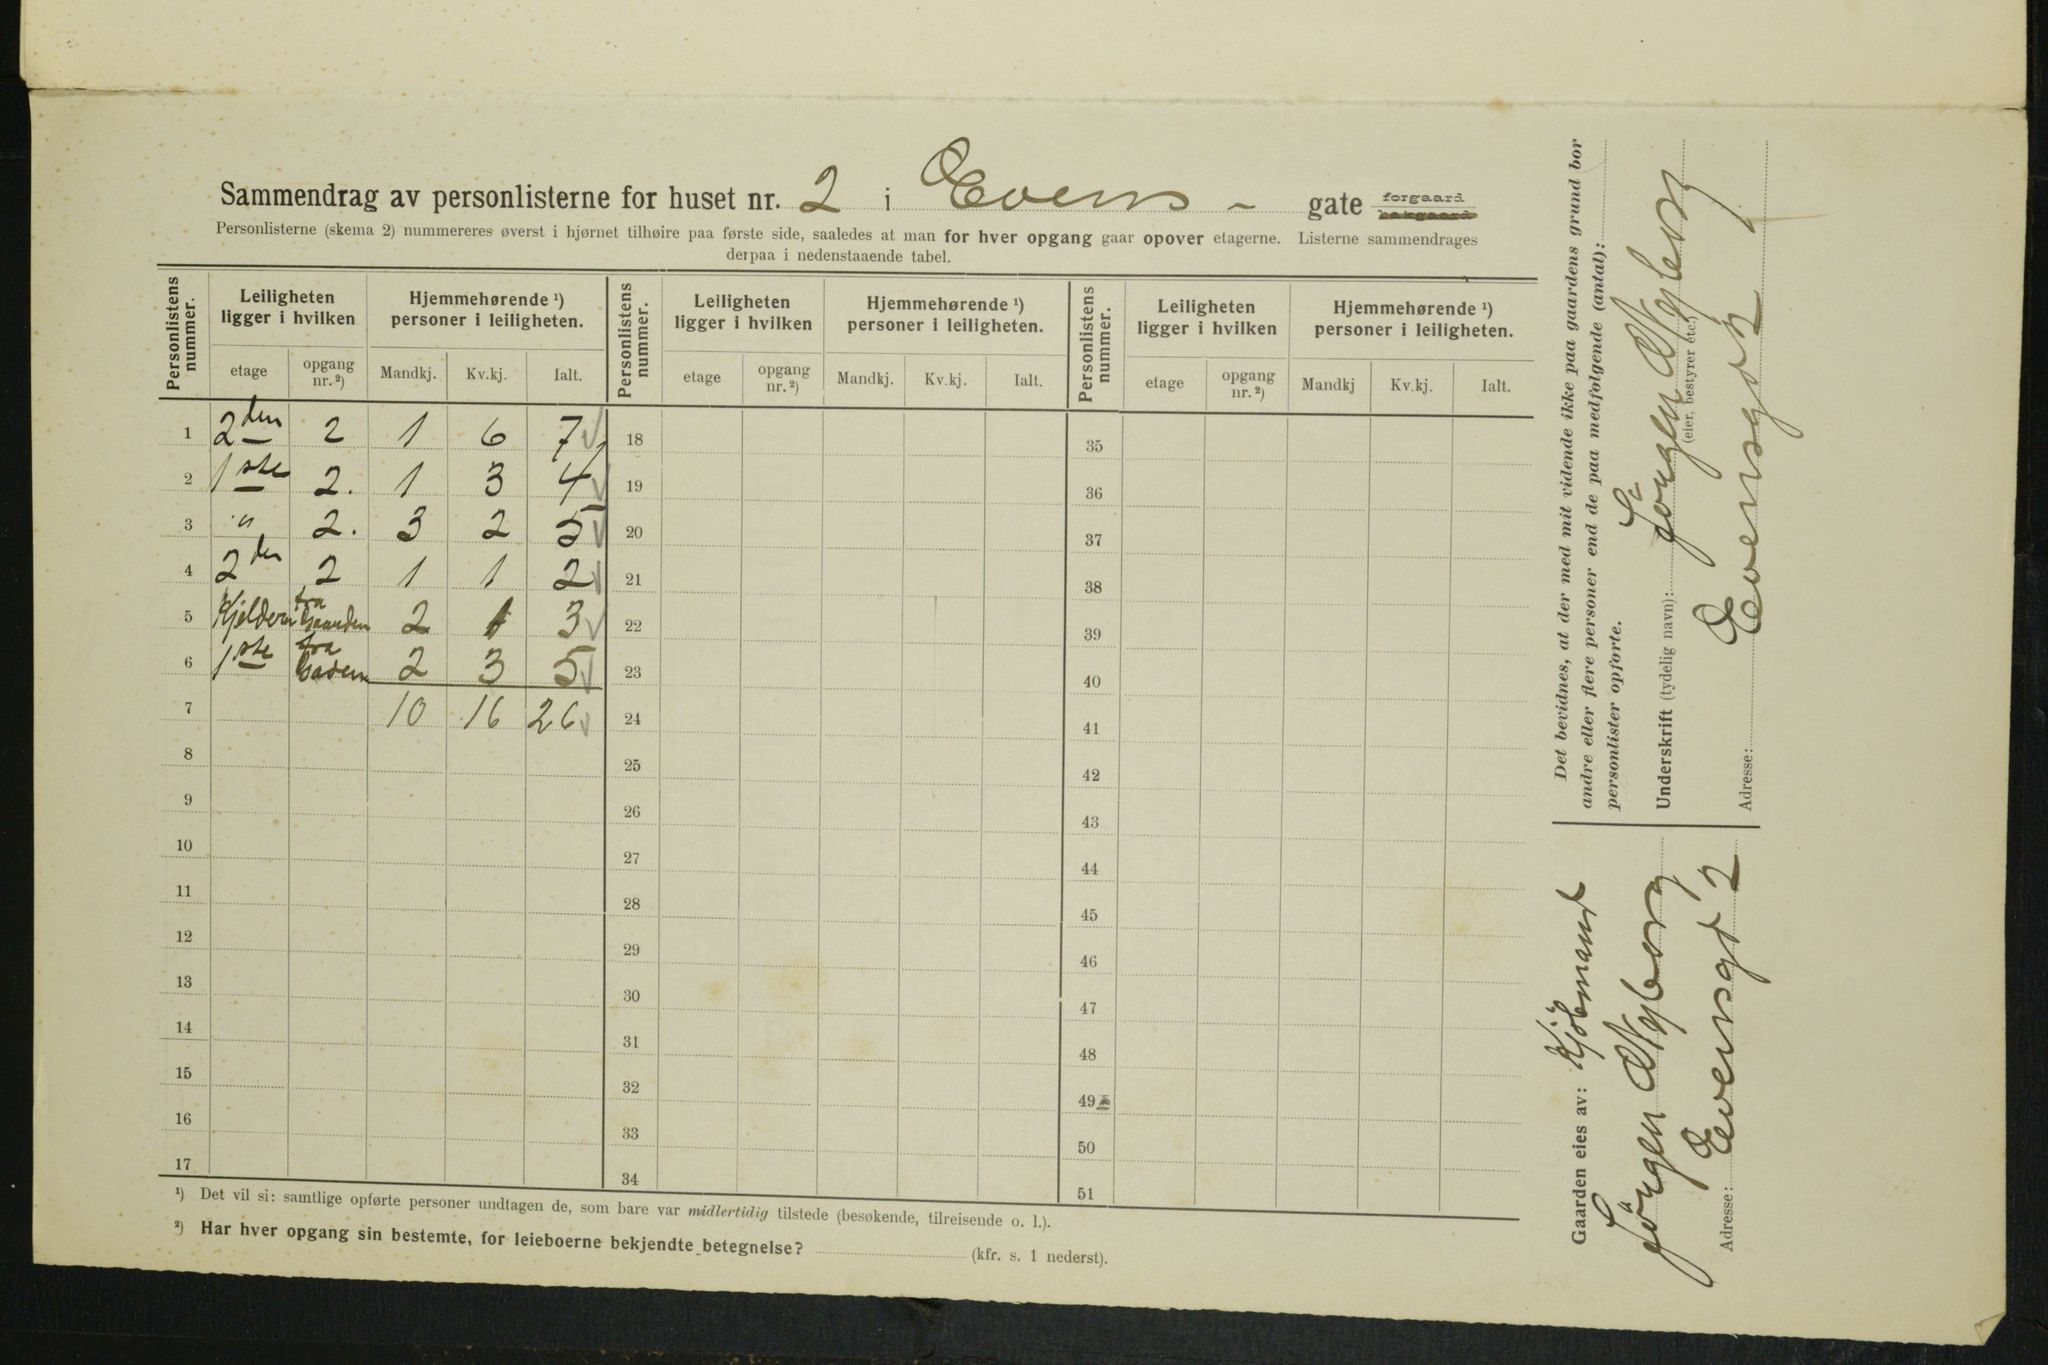 Sammendrag av personlisterne for huset nr. 2 i Evens - gate forgaard bakgaard
Personlisterne (skema 2) nummereres øverst i hjørnet tilhøire paa første side, saaledes at man for hver opgang gaar opover etagerne. Listerne sammendrages
derpaa i nedenstaaende tabel.
Personlistens nummer. Leiligheten ligger i hvilken Hjemmehørende ¹) personer i leiligheten. Personlistens nummer. Leiligheten ligger i hvilken Hjemmehørende ¹) personer i leiligheten. Personlistens nummer. Leiligheten ligger i hvilken Hjemmehørende ¹) personer i leiligheten.
etage opgang nr. ²) Mandkj. Kv.kj. Ialt. etage opgang nr. ²) Mandkj. Kv.kj. Ialt. etage opgang nr. ²) Mandkj Kv.kj. Ialt.
1 2den 2 1 6 7 18 35
2 1ste 2. 1 3 4 19 36
3 " 2. 3 2 5 20 37
4 2den 2 1 1 2 21 38
5 Kjelderen fra Gaarden 2 1 3 22 39
6 1ste fra Gaden 2 3 5 23 40
7 10 16 26 24 41
8 25 42
9 26 43
10 27 44
11 28 45
12 29 46
13 30 47
14 31 48
15 32 49
16 33 50
17 34 51
¹) Det vil si: samtlige opførte personer undtagen de, som bare var midlertidig tilstede (besøkende, tilreisende o. l.).
²) Har hver opgang sin bestemte, for leieboerne bekjendte betegnelse? (kfr. s. 1 nederst).
Det bevidnes, at der med mit vidende ikke paa gaardens grund bor
andre eller flere personer end de paa medfølgende (antal):
personlister opførte.
Underskrift (tydelig navn): Jörgen Nyborg
(eier, bestyrer etc.)
Adresse: Evensgt 2
Gaarden eies av: Kjöbmand
Jörgen Nyborg
Adresse: Evensgt 2